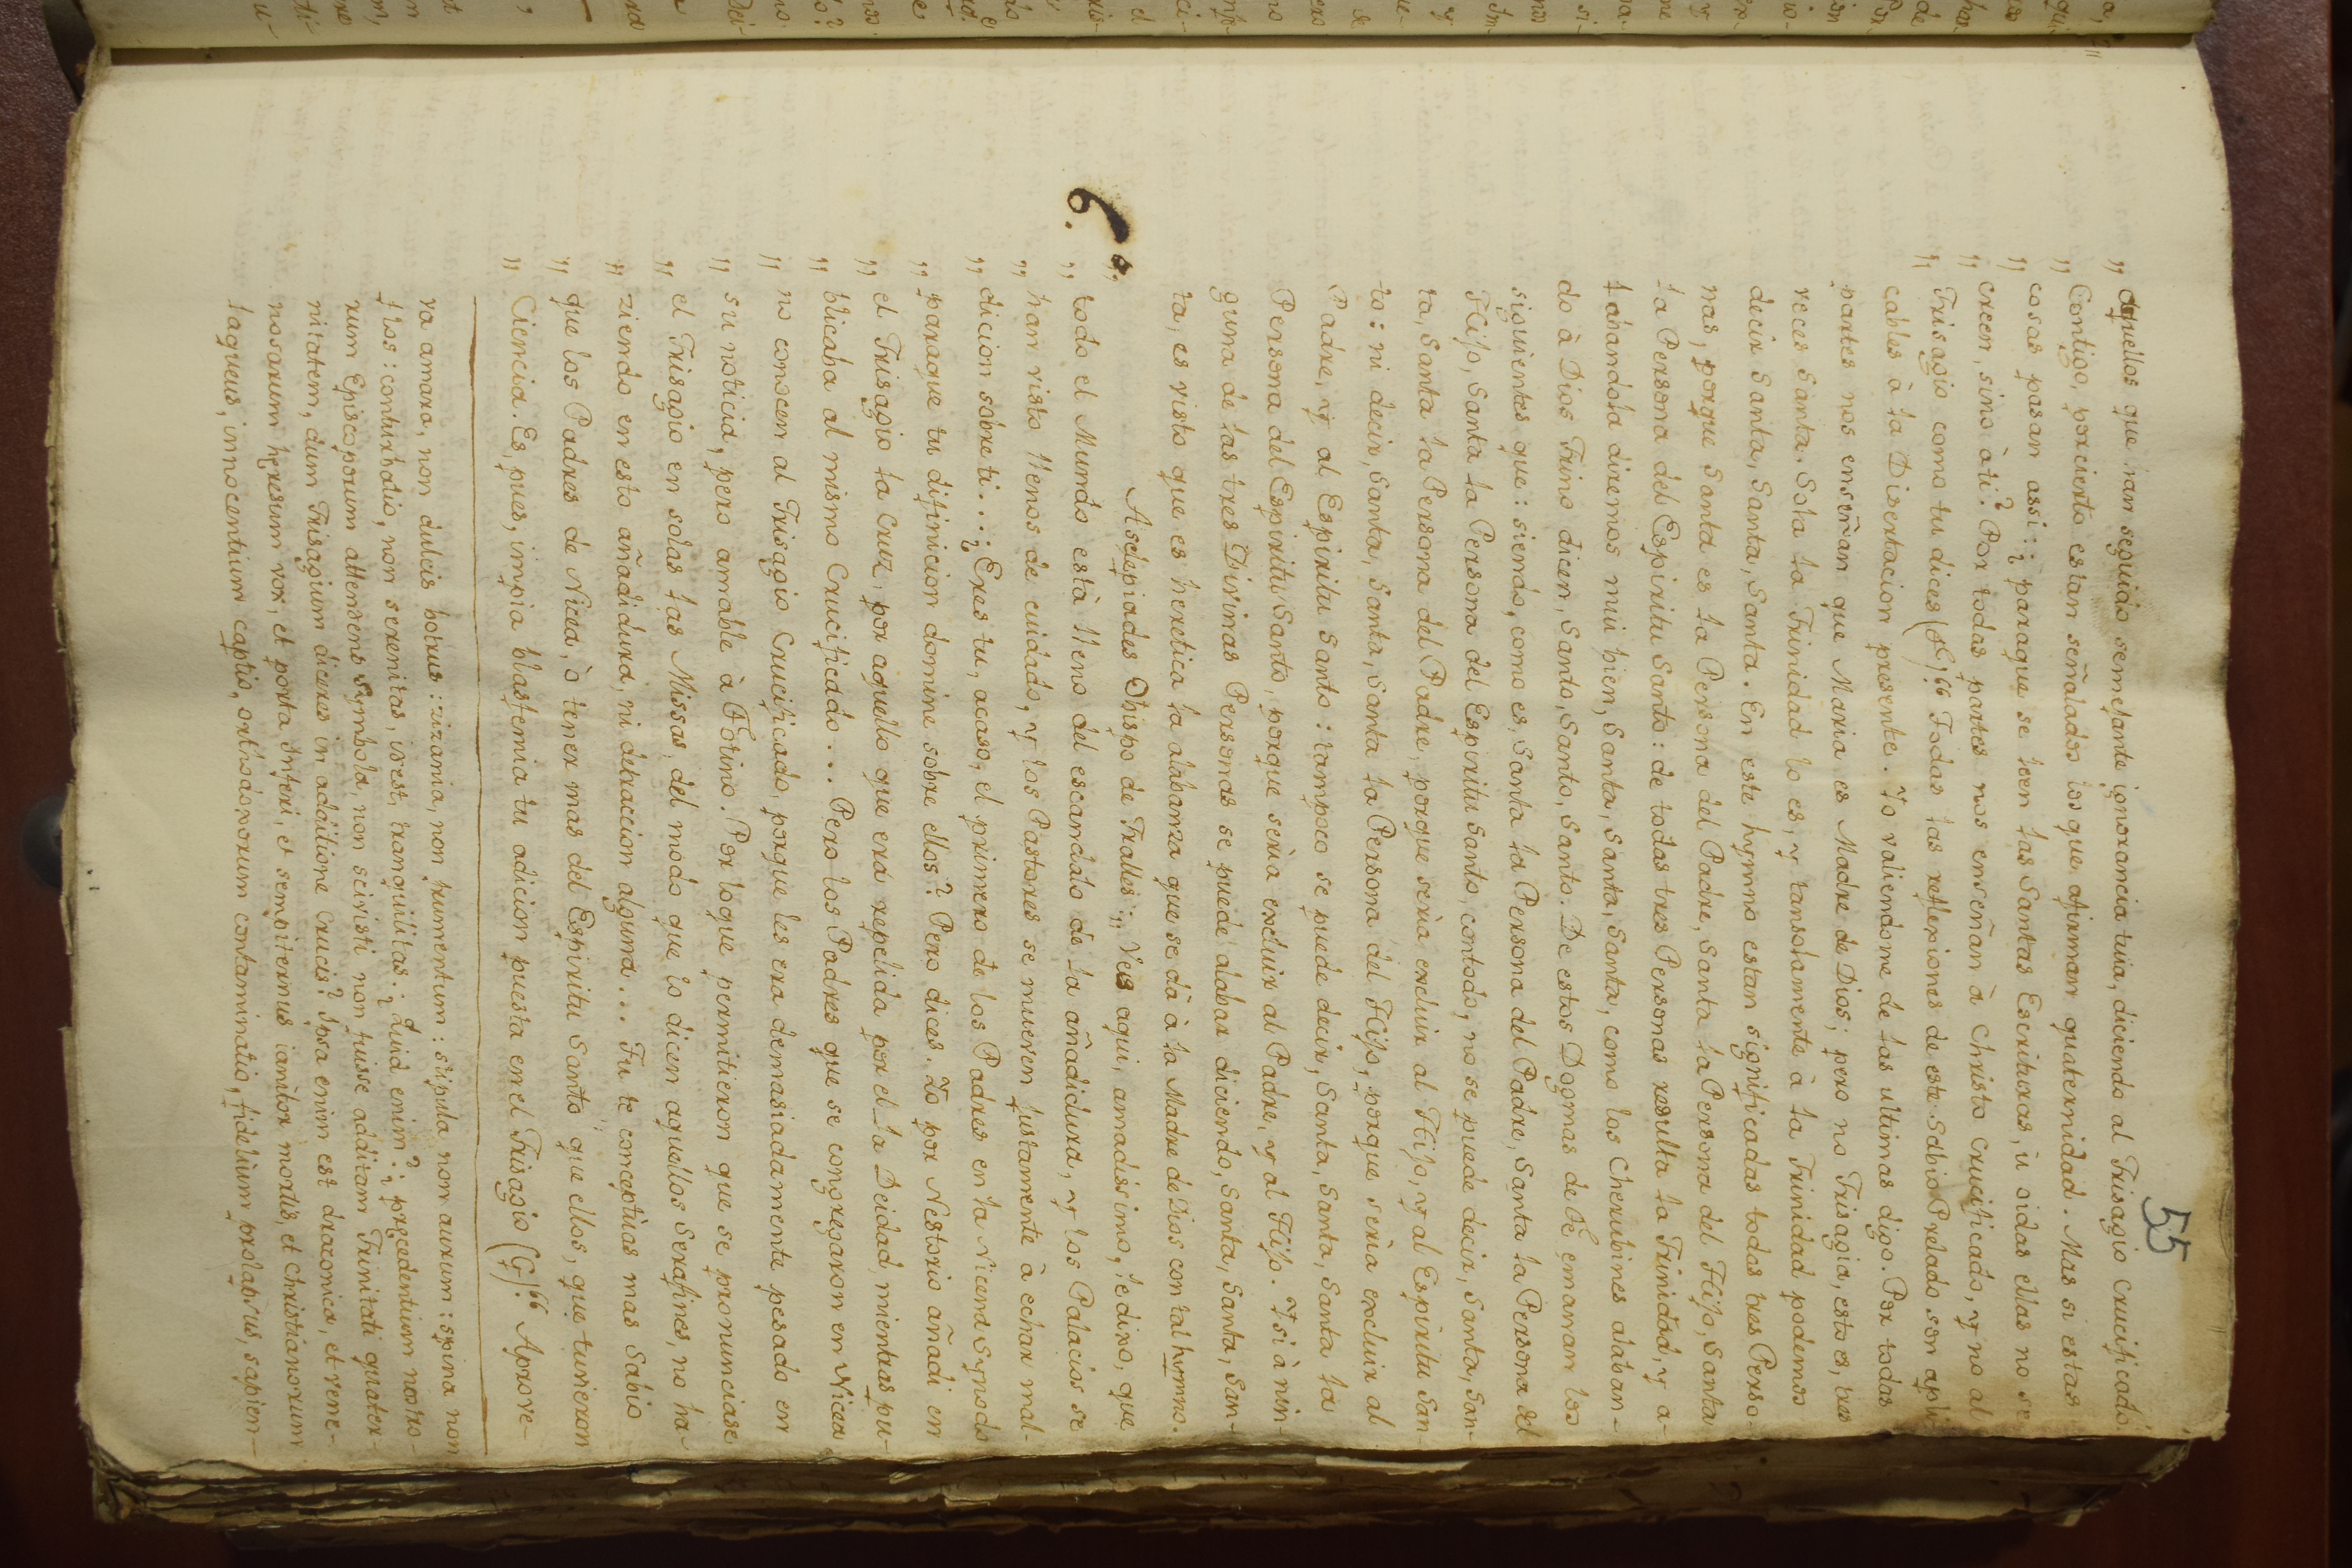 55
„ aquellos que han seguido semejante ignorancia tuia, diciendo al Trisagio Crucificado
„ Contigo, por cierto estan señalados los que afirman quaternidad. Mas si estas
„ cosas pasan assi: ¿ paraque se leen las Santas Escrituras, ù oidas ellas no se
„ creen, sino à ti? Por todas partes nos enseñan à Christo Crucificado, y no al
„ Trisagio como tu dices (F)." Todas las reflexiones de este Sabio Prelado son apli-
cables à la Disertacion presente. Yo valiendome de las ultimas digo. Por todas
partes nos enseñan que Maria es Madre de Dios; pero no Trisagia, esto es, tres
veces Santa. Sola la Trinidad lo es, y tansolamente à la Trinidad podemos
decir Santa, Santa, Santa. En este hymno estan significadas todas tres Perso-
nas, porque Santa es la Persona del Padre, Santa la Persona del Hijo, Santa
la Persona del Espiritu Santo: de todas tres Personas resulta la Trinidad, y a-
labandola diremos mui bien, Santa, Santa, Santa, como los Cherubines alaban-
do à Dios Trino dicen, Santo, Santo, Santo. De estos Dogmas de Fè emanan los
siguientes que: siendo, como es, Santa la Persona del Padre, Santa la Persona del
Hijo, Santa la Persona del Espiritu Santo, contodo, no se puede decir, Santa, San-
ta, Santa la Persona del Padre, porque serìa excluir al Hijo, y al Espiritu San-
to: ni decir, Santa, Santa, Santa la Persona del Hijo, porque serìa excluir al
Padre, y al Espiritu Santo: tampoco se puede decir, Santa, Santa, Santa la
Persona del Espiritu Santo, porque serìa excluir al Padre, y al Hijo. Y si à nin-
guna de las tres Divinas Personas se puede alabar diciendo, Santa, Santa, San-
ta, es visto que es heretica la alabanza que se dà à la Madre de Dios con tal hymno.
6. Asclepiades Obispo de Tralles: „ Veis aqui, amadissimo, le dixo, que
„ todo el Mundo està lleno del escandalo de la añadidura, y los Palacios se
„ han visto llenos de cuidado, y los Pastores se mueven justamente à echar mal-
„ dicion sobre ti...¿ Eres tu, acaso, el primero de los Padres en la Nicena Synodo
„ paraque tu difinicion domine sobre ellos? Pero dices. Yo por Nestorio añadi en
„ el Trisagio la Cruz, por aquello que era repelida por el la Deidad, mientras pu-
„ blicaba al mismo Crucificado... Pero los Padres que se congregaron en Nicea
„ no conocen al Trisagio Crucificado, porque les era demasiadamente pesado en
„ su noticia, pero amable à Fotino. Por loque permitieron que se pronunciase
„ el Trisagio en solas las Missas, del modo que lo dicen aquellos Serafines, no ha-
„ ziendo en esto añadidura, ni detraccion alguna... Tu te conceptùas mas Sabio
„ que los Padres de Nicea, ò tener mas del Espiritu Santo que ellos, que tuvieron
„ Ciencia. Es, pues, impia blasfemia tu adicion puesta en el Trisagio (G)." Aprove-
va amara, non dulcis botrus: zizania, non frumentum: stipula non aurum: spina non
flos: conturbatio, non serenitas, id est, tranquilitas. ¿ Quid enim?: ¿ precedentium nostro-
rum Episcoporum attendens Symbola, non scivisti non fuisse additam Trinitati quater-
nitatem, dum Trisagium diceres in additione Crucis? Ipsa enim est draconica, et vene-
nosarum heresum vox, et porta Inferi, et sempiternus ianitor mortis, et Christianorum
laqueus, innocentium captio, orthodoxorum contaminatio, fidelium prolapsus, sapien-